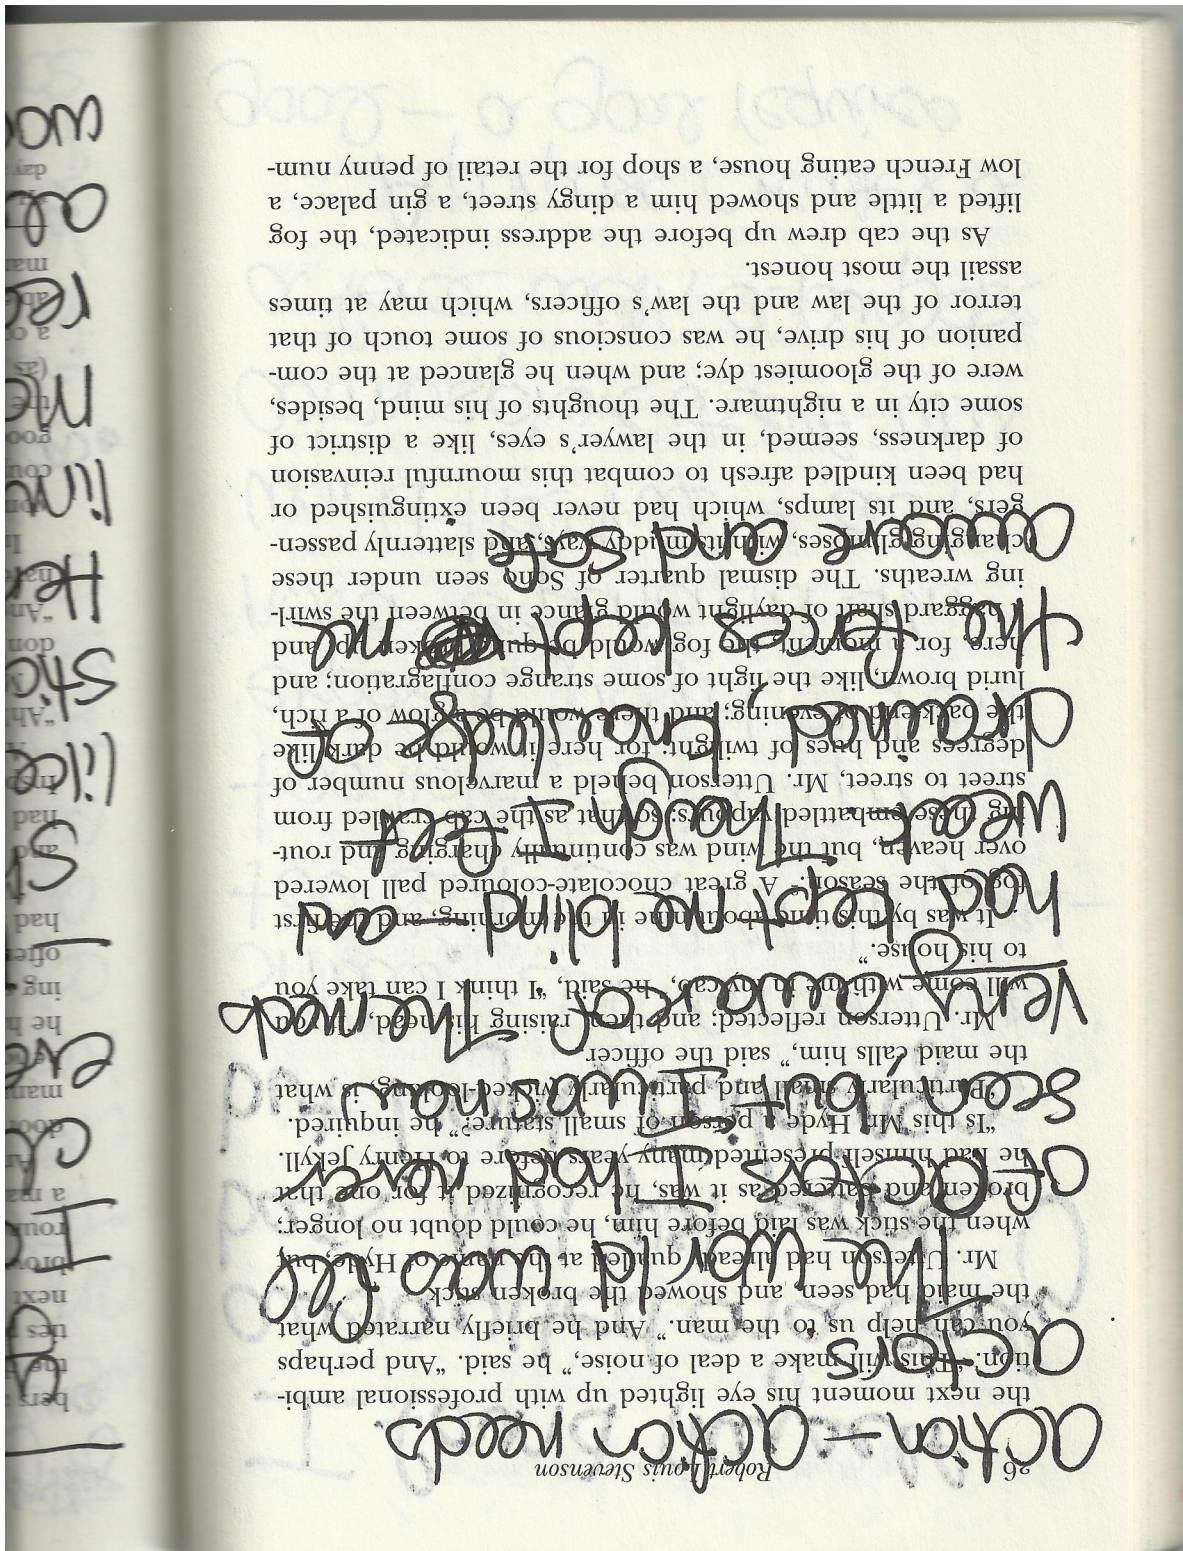 26 Robert Louis Stevenson
the next moment his eye lighted up with professional ambi-
tion. "This will make a deal of noise," he said. "And perhaps
you can help us to the man." And he briefly narrated what
the maid had seen, and showed the broken stick.
Mr. Utterson had already quailed at the name of Hyde; but
when the stick was laid before him, he could doubt no longer;
broken and battered as it was, he recognized it for one that
he had himself presented many years before to Henry Jekyll.
"Is this Mr. Hyde a person of small stature?" he inquired.
"Particularly small and particularly wicked-looking, is what
the maid calls him," said the officer.
Mr. Utterson reflected; and then, raising his head, "If you
will come with me in my cab," he said, "I think I can take you
to his house."
It was by this time about nine in the morning, and the first
fog of the season. A great chocolate-coloured pall lowered
over heaven, but the wind was continually charging and rout-
ing these embattled vapours; so that as the cab crawled from
street to street, Mr. Utterson beheld a marvelous number of
degrees and hues of twilight; for here it would be dark like
the back-end of evening; and there would be a glow of a rich,
lurid brown, like the light of some strange conflagration; and
here, for a moment, the fog would be quite broken up, and
a haggard shaft of daylight would glance in between the swirl-
ing wreaths. The dismal quarter of Soho seen under these
changing glimpses, with its muddy ways, and slatternly passen-
gers, and its lamps, which had never been extinguished or
had been kindled afresh to combat this mournful reinvasion
of darkness, seemed, in the lawyer's eyes, like a district of
some city in a nightmare. The thoughts of his mind, besides,
were of the gloomiest dye; and when he glanced at the com-
panion of his drive, he was conscious of some touch of that
terror of the law and the law's officers, which may at times
assail the most honest.
As the cab drew up before the address indicated, the fog
lifted a little and showed him a dingy street, a gin palace, a
low French eating house, a shop for the retail of penny num-
action — action needs
actors
The world was full
of actors I had never
seen, but I was now
very aware of. The meds
had kept me blind — and
weak. Though I felt
drained, knowledge of
the kept me
aware and safe.